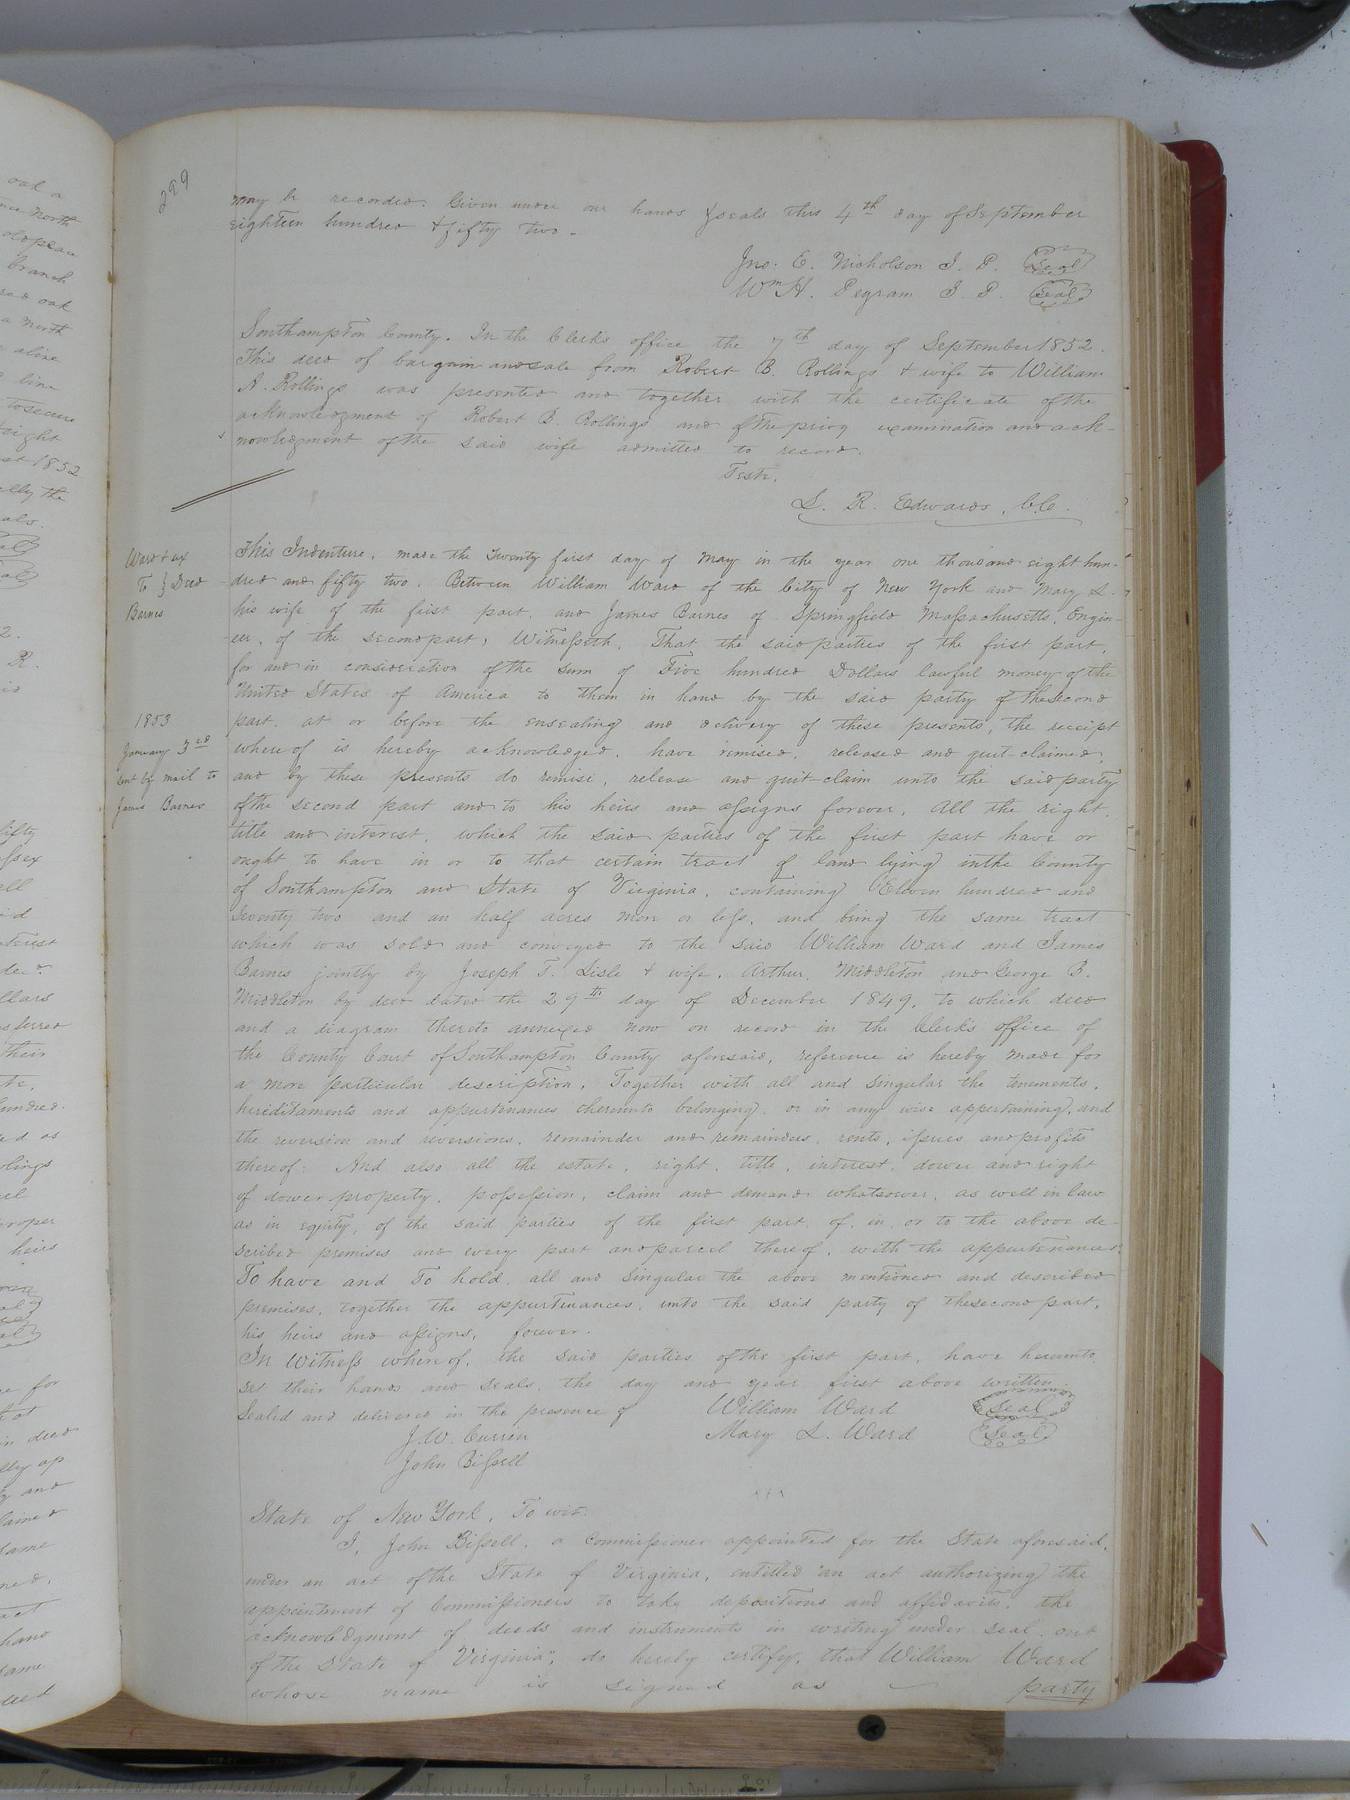 299
may be recorded. Given under our hands & seals this 4th day of September
eighteen hundred & fifty two.
Jno. E. Nicholson J. P. Seal
Wm H. Pegram J P. Seal
Southampton County. In the Clerk's office the 7th day of September 1852.
This deed of bargain and sale from Robert B. Rollings & wife to William
A. Rollings was presented and together with the certificate of the
acknowledgment of Robert B. Rollings and of the privy examination and ack-
nowledgment of the said wife admitted to record.
Teste.
L. R. Edwards, C.C.
Ward & ux
To } Deed
Barnes
This Indenture, made the twenty first day of May in the year one thousand eight hun-
dred and fifty two. Between William Ward of the City of New York and Mary L.
his wife of the first part, and James Barnes of Springfield Massachusetts, Engin-
eer, of the second part, Witnesseth, That the said parties of the first part,
for and in consideration of the sum of Five hundred Dollars lawful money of the
United States of America to them in hand by the said party of the second
part, at or before the ensealing and delivery of these presents, the receipt
whereof is hereby acknowledged, have remised, released and quit-claimed,
and by these presents do remise, release and quit-claim unto the said party
of the second part and to his heirs and assigns forever, All the right,
title and interest, which the said parties of the first part have or
ought to have in or to that certain tract of land lying in the County
of Southampton and State of Virginia, containing Eleven hundred and
seventy two and an half acres more or less, and being the same tract
which was sold and conveyed to the said William Ward and James
Barnes jointly by Joseph T. Lisle & wife, Arthur Middleton and George B.
Middleton by deed dated the 29th day of December 1849, to which deed
and a diagram thereto annexed now on record in the Clerk's office of
the County Court of Southampton County aforesaid, reference is hereby made for
a more particular description. Together with all and singular the tenements,
hereditaments and appurtenances thereunto belonging, or in any wise appertaining, and
the reversion and reversions, remainder and remainders, rents, issues and profits
thereof: And also all the estate, right, title, interest, dower and right
of dower property, possession, claim and demand whatsoever, as well in law
as in equity, of the said parties of the first part of, in, or to the above de-
scribed premises and every part and parcel thereof, with the appurtenances.
To have and To hold, all and singular the above mentioned and described
premises, together the appurtenances, unto the said party of the second part,
his heirs and assigns, forever.
In Witness whereof, the said parties of the first part, have hereunto
set their hands and seals, the day and year first above written.
1853
January 3rd
sent by mail to
James Barnes
Sealed and delivered in the presence of
J. W. Currin
John Bissell
William Ward Seal
Mary L. Ward Seal
State of New York, To wit:
I, John Bissell, a Commissioner appointed for the State aforesaid,
under an act of the State of Virginia, entitled "an act authorizing the
appointment of Commissioners to take depositions and affidavits, the
acknowledgment of deeds and instruments in writing under seal, out
of the State of Virginia", do hereby certify, that William Ward
whose name is signed as party